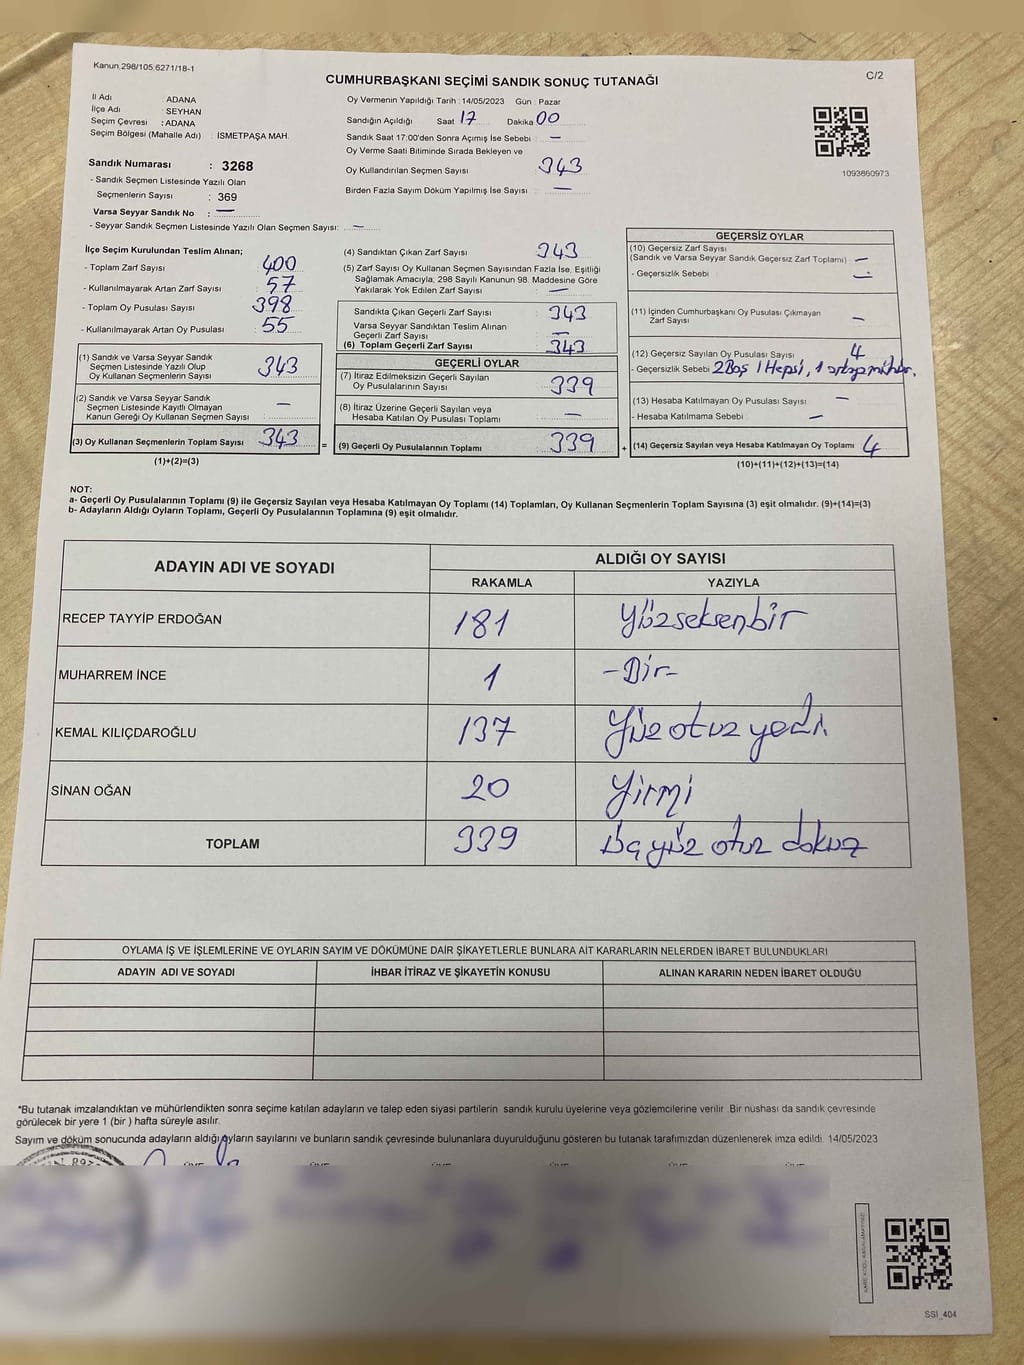 Kanun 298/105 6271/18-1
C/2
CUMHURBAŞKANI SEÇİMİ SANDIK SONUÇ TUTANAĞI
İl Adı : ADANA
İlçe Adı : SEYHAN
Seçim Çevresi : ADANA
Seçim Bölgesi (Mahalle Adı) : İSMETPAŞA MAH.
Sandık Numarası : 3268
- Sandık Seçmen Listesinde Yazılı Olan
Seçmenlerin Sayısı : 369
Varsa Seyyar Sandık No : —
- Seyyar Sandık Seçmen Listesinde Yazılı Olan Seçmen Sayısı: —
Oy Vermenin Yapıldığı Tarih : 14/05/2023 Gün : Pazar
Sandığın Açıldığı Saat 17 Dakika 00
Sandık Saat 17:00'den Sonra Açımış İse Sebebi : —
Oy Verme Saati Bitiminde Sırada Bekleyen ve
Oy Kullandırılan Seçmen Sayısı : 343
Birden Fazla Sayım Döküm Yapılmış İse Sayısı : —
1093860973
İlçe Seçim Kurulundan Teslim Alınan;
- Toplam Zarf Sayısı : 400
- Kullanılmayarak Artan Zarf Sayısı : 57
- Toplam Oy Pusulası Sayısı : 398
- Kullanılmayarak Artan Oy Pusulası : 55
(1) Sandık ve Varsa Seyyar Sandık
Seçmen Listesinde Yazılı Olup
Oy Kullanan Seçmenlerin Sayısı : 343
(2) Sandık ve Varsa Seyyar Sandık
Seçmen Listesinde Kayıtlı Olmayan
Kanun Gereği Oy Kullanan Seçmen Sayısı : —
(3) Oy Kullanan Seçmenlerin Toplam Sayısı : 343 =
(1)+(2)=(3)
(4) Sandıktan Çıkan Zarf Sayısı : 343
(5) Zarf Sayısı Oy Kullanan Seçmen Sayısından Fazla İse, Eşitliği
Sağlamak Amacıyla; 298 Sayılı Kanunun 98. Maddesine Göre
Yakılarak Yok Edilen Zarf Sayısı : —
Sandıkta Çıkan Geçerli Zarf Sayısı : 343
Varsa Seyyar Sandıktan Teslim Alınan
Geçerli Zarf Sayısı : —
(6) Toplam Geçerli Zarf Sayısı : 343
GEÇERLİ OYLAR
(7) İtiraz Edilmeksizin Geçerli Sayılan
Oy Pusulalarının Sayısı : 339
(8) İtiraz Üzerine Geçerli Sayılan veya
Hesaba Katılan Oy Pusulası Toplamı : —
(9) Geçerli Oy Pusulalarının Toplamı : 339 +
GEÇERSİZ OYLAR
(10) Geçersiz Zarf Sayısı
(Sandık ve Varsa Seyyar Sandık Geçersiz Zarf Toplamı) : —
- Geçersizlik Sebebi : —
(11) İçinden Cumhurbaşkanı Oy Pusulası Çıkmayan
Zarf Sayısı : —
(12) Geçersiz Sayılan Oy Pusulası Sayısı : 4
- Geçersizlik Sebebi : 2 Boş 1 Hepsi, 1
(13) Hesaba Katılmayan Oy Pusulası Sayısı : —
- Hesaba Katılmama Sebebi : —
(14) Geçersiz Sayılan veya Hesaba Katılmayan Oy Toplamı : 4
(10)+(11)+(12)+(13)=(14)
NOT:
a- Geçerli Oy Pusulalarının Toplamı (9) ile Geçersiz Sayılan veya Hesaba Katılmayan Oy Toplamı (14) Toplamları, Oy Kullanan Seçmenlerin Toplam Sayısına (3) eşit olmalıdır. (9)+(14)=(3)
b- Adayların Aldığı Oyların Toplamı, Geçerli Oy Pusulalarının Toplamına (9) eşit olmalıdır.
ADAYIN ADI VE SOYADI ALDIĞI OY SAYISI
RAKAMLA YAZIYLA
RECEP TAYYİP ERDOĞAN 181 Yüzseksenbir
MUHARREM İNCE 1 -Bir-
KEMAL KILIÇDAROĞLU 137 Yüz otuz yedi
SİNAN OĞAN 20 Yirmi
TOPLAM 339 üç yüz otuz dokuz
OYLAMA İŞ VE İŞLEMLERİNE VE OYLARIN SAYIM VE DÖKÜMÜNE DAİR ŞİKAYETLERLE BUNLARA AİT KARARLARIN NELERDEN İBARET BULUNDUKLARI
ADAYIN ADI VE SOYADI İHBAR İTİRAZ VE ŞİKAYETİN KONUSU ALINAN KARARIN NEDEN İBARET OLDUĞU
*Bu tutanak imzalandıktan ve mühürlendikten sonra seçime katılan adayların ve talep eden siyasi partilerin sandık kurulu üyelerine veya gözlemcilerine verilir. Bir nüshası da sandık çevresinde
görülecek bir yere 1 (bir ) hafta süreyle asılır.
Sayım ve döküm sonucunda adayların aldığı oyların sayılarını ve bunların sandık çevresinde bulunanlara duyurulduğunu gösteren bu tutanak tarafımızdan düzenlenerek imza edildi. 14/05/2023
SSI_404